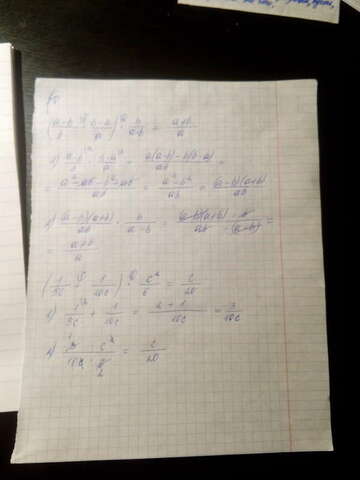 (a-b/b - b-a/a) · b/a-b = a+b/a
1) a-b/b - b-a/a = a(a-b)-b(b-a)/ab =
= a²-ab-b²+ab/ab = a²-b²/ab = (a-b)(a+b)/ab
2) (a-b)(a+b)/ab · b/a-b = (a-b)(a+b) · b/ab · (a-b) =
= a+b/a
(1/5c + 1/10c) · c²/6 = c/20
1) 1/5c + 1/10c = 2+1/10c = 3/10c
2) 3 · c²/10c · 6 = c/20